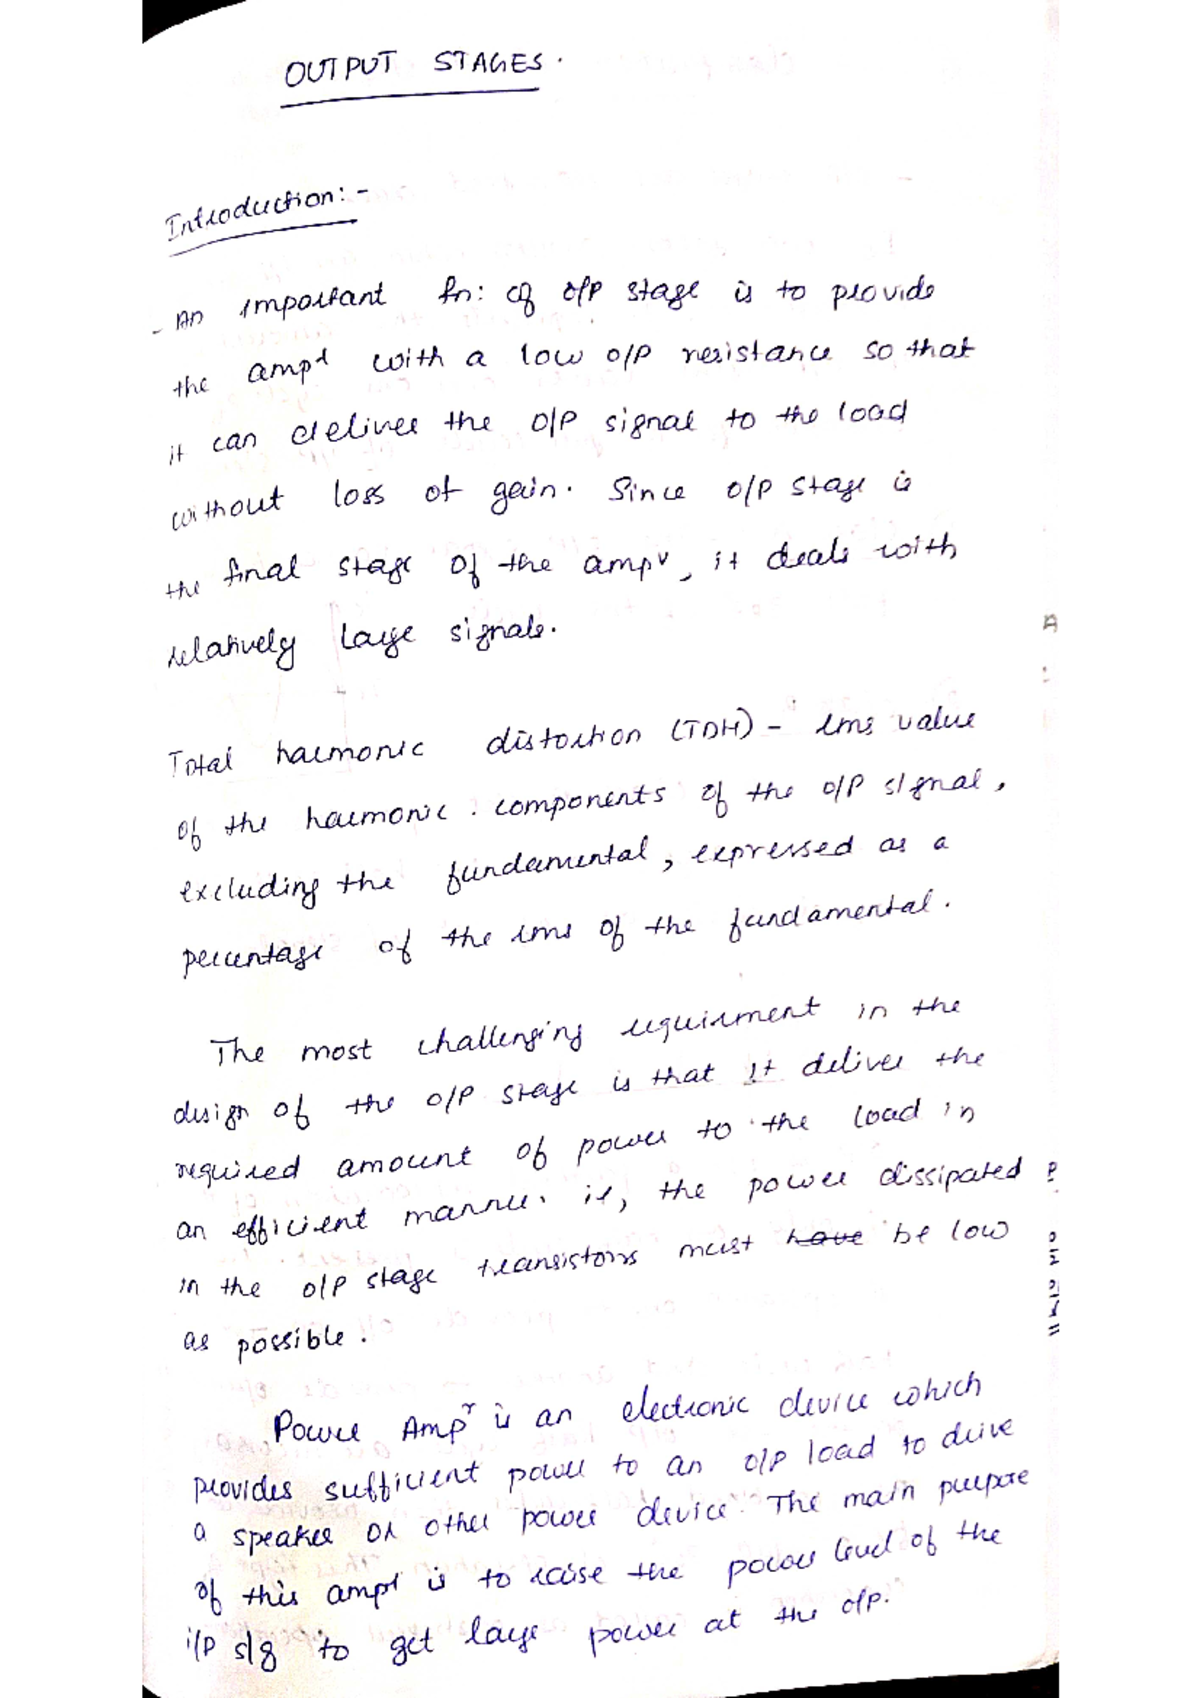 OUTPUT STAGES.
Introduction:-
- An important fn: of o/p stage is to provide
the ampr with a low o/p resistance so that
it can deliver the o/p signal to the load
without loss of gain. Since o/p stage is
the final stage of the ampr, it deals with
relatively large signals.
Total harmonic distortion (TDH) - rms value
of the harmonic components of the o/p signal,
excluding the fundamental, expressed as a
percentage of the rms of the fundamental.
The most challenging requirment in the
design of the o/p stage is that it deliver the
required amount of power to the load in
an efficient manner. ie, the power dissipated
in the o/p stage transistors must have be low
as possible.
Power Ampr is an electronic device which
provides sufficient power to an o/p load to drive
a speaker or other power device. The main purpose
of this ampr is to raise the power level of the
i/p s/g to get large power at the o/p.